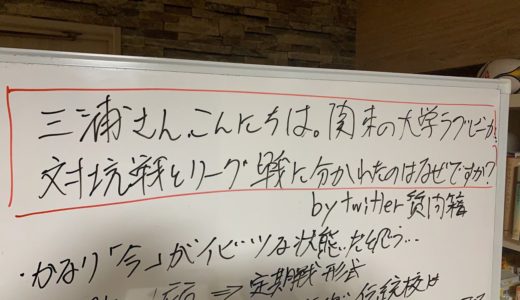 三浦さん、こんにちは。関東の大学ラグビーが
対抗戦とリーグ戦に分かれたのはなぜですか?
by twitter 質問箱
・かなり「今」がイビツな状態だと思う…
⇒ 定期戦形式
伝統校は